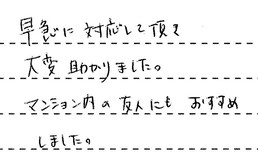 早急に対応して頂き
大変助かりました。
マンション内の友人にも おすすめ
しました。